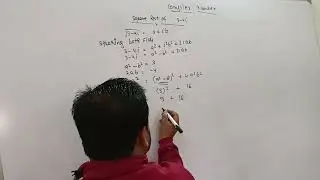 Complex Number
Square Root of 3-4i
√3-4i = a+ib
Squaring both side
3-4i = a²+i²b²+2iab
3-4i = a²-b²+2iab
a²-b² = 3
2ab = -4
(a²-b²)² + 4a²b²
(3)² + 16
9 + 16